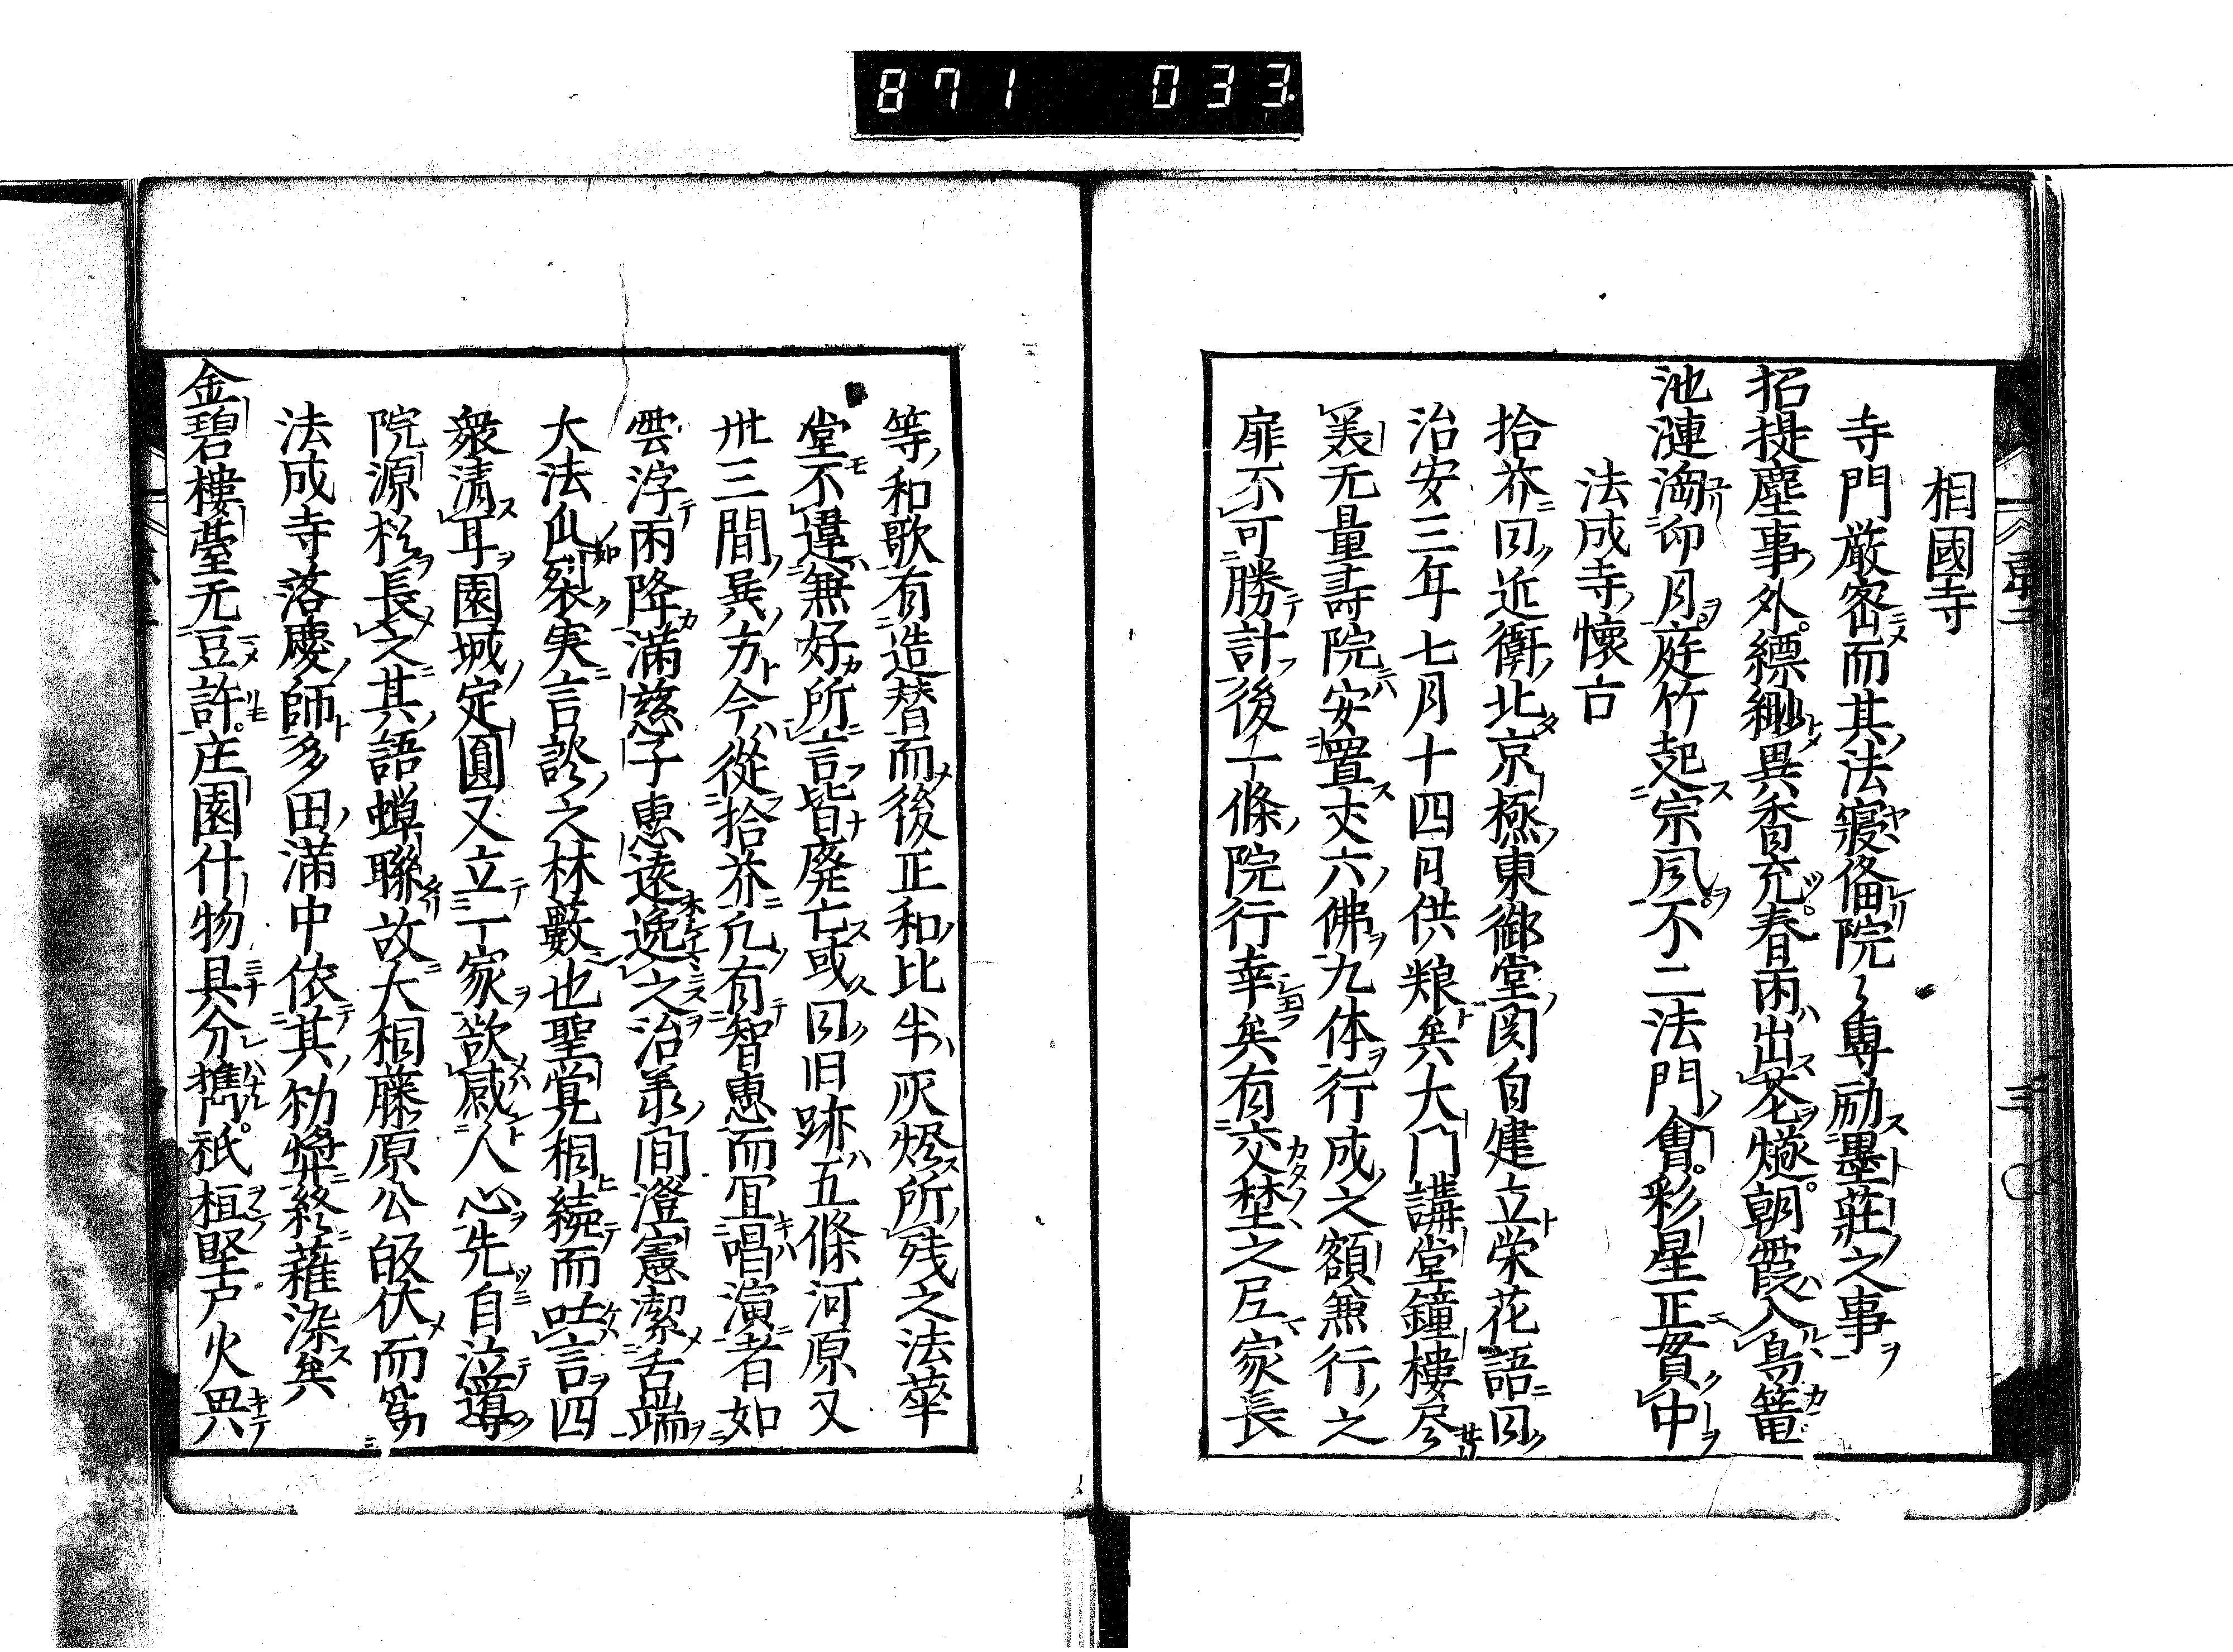 871 033
相國寺
寺門嚴密而其法寢俻院々專励墨莊之事
招提塵事外縹緲異香充春雨出苍燧朝霞入鳥篭
池漣渹仰月庭竹起宗風不二法門會彩星正貫中
法成寺懷古
拾芥曰近衛北京極東御堂関白建立栄花語曰
治安三年七月十四日供粮矣大門講堂鐘樓尽
羙无量壽院安置丈六佛九体行成之額兼行之
扉不可勝計後一條院行幸矣有交埜之尼家長
等和歌有造替而後正和比半灰燼所残之法華
堂不違無好所言皆廃亡或曰旧跡五條河原又
卅三間巽方今從拾芥凡有智惠而冝唱演者如
雲浮雨降滿慈子惠遠逸之治羕間澄憲潔舌端
大法瓜裂実言談之林藪也聖覚相続而吐言四
衆清耳園城定圓又立一家欲感人心先自泣導
院源松長之其語蝉聯故大相藤原公皈伏而爲
法成寺落慶師多田滿中依其勧奬終薙染矣
金碧樓臺无豆許庄園什物具分攜祇桓堅户火畀